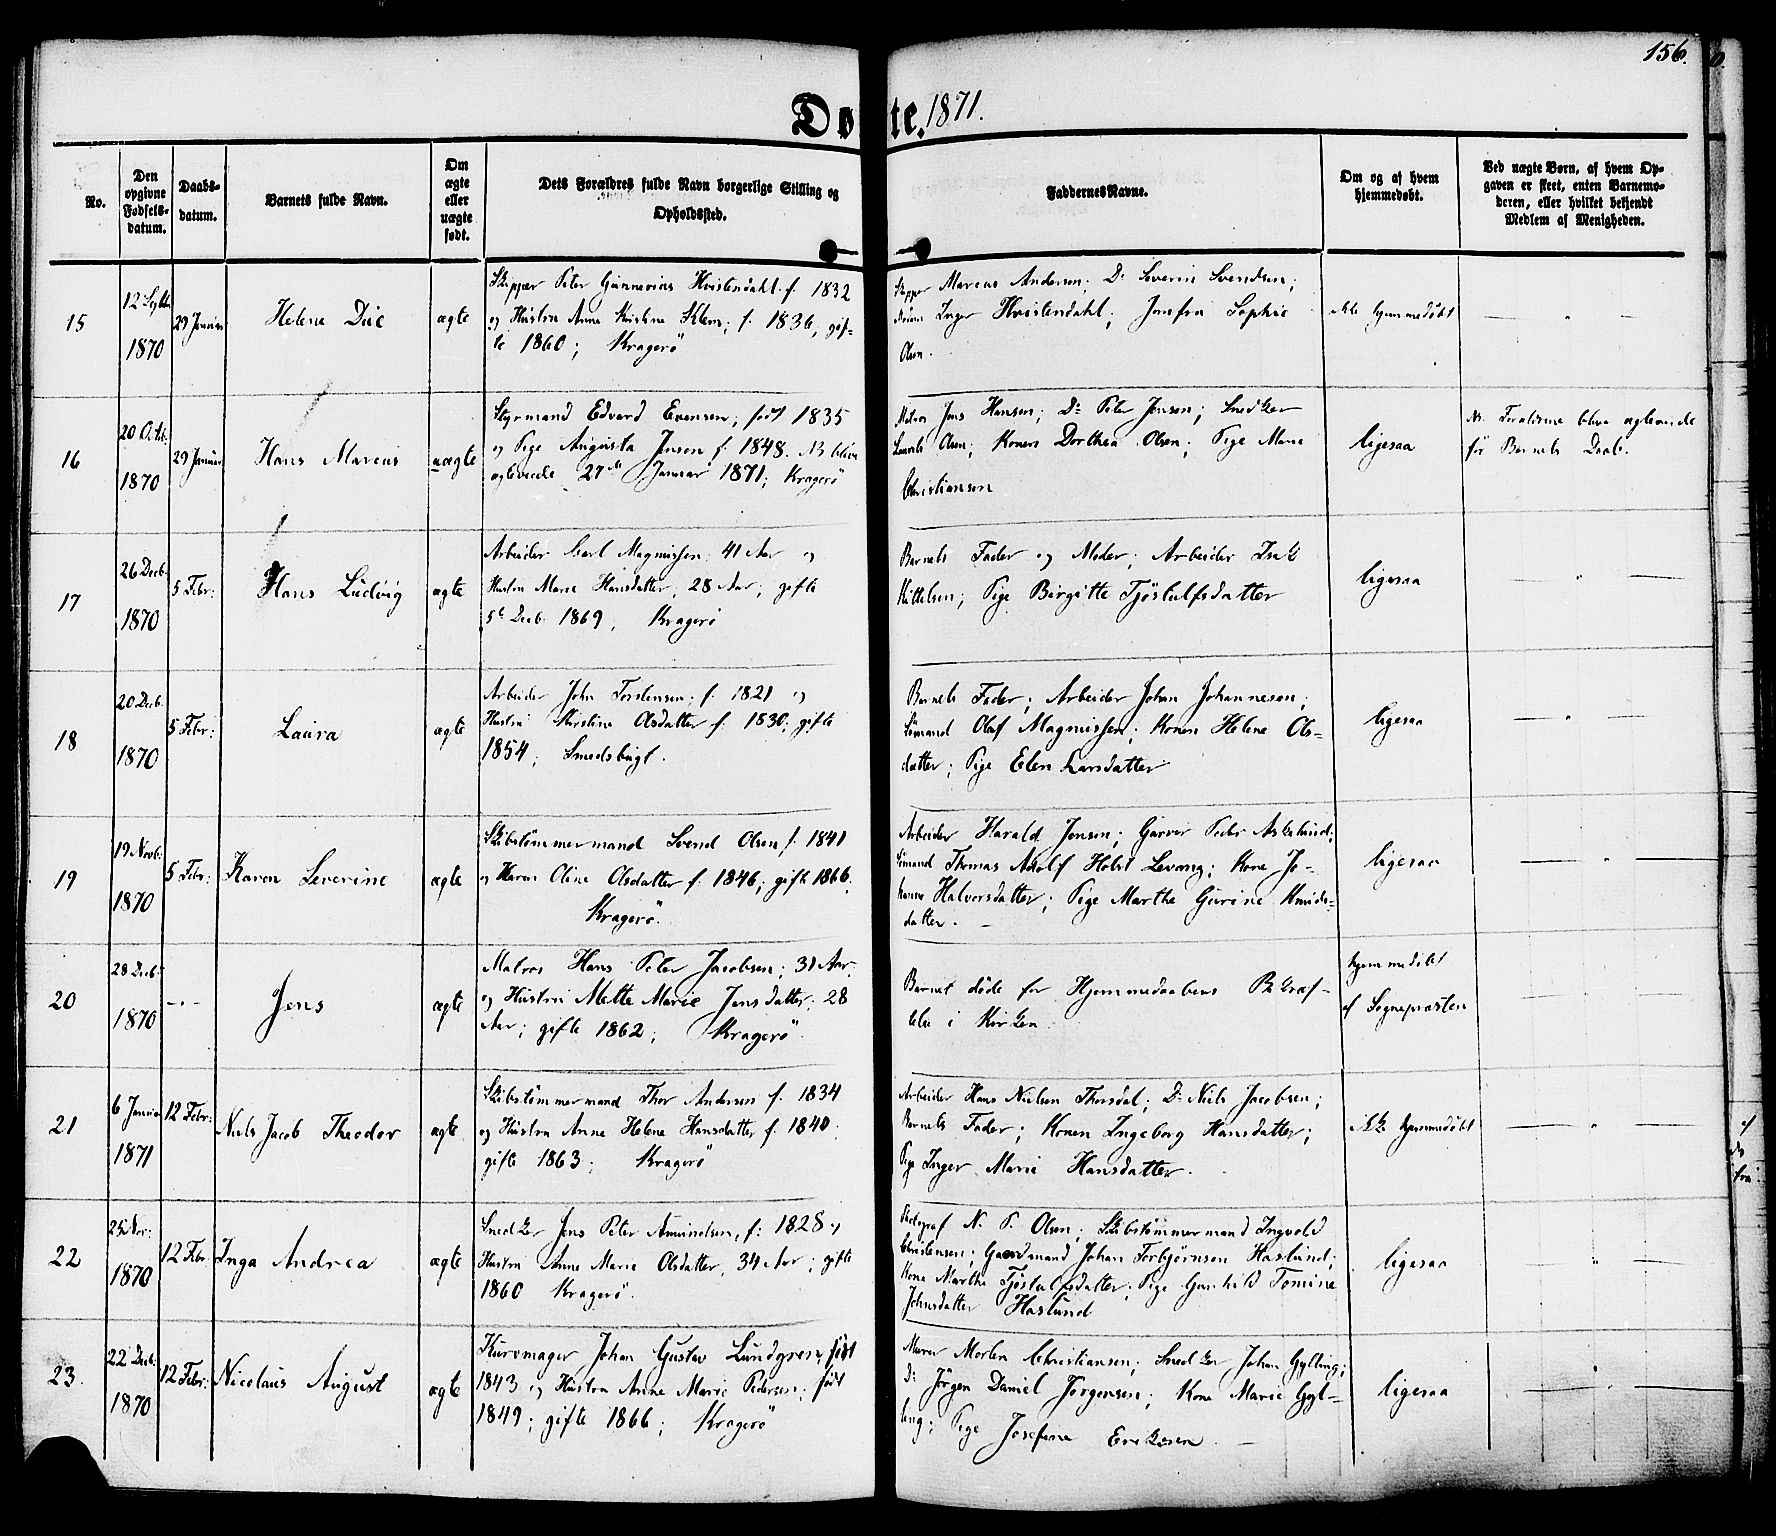 156.
Døbte. 1871.
No.
Den opgivne Fødselsdatum.
Daabsdatum.
Barnets fulde Navn.
Om ægte eller uægte født.
Dets Forældres fulde Navn borgerlige Stilling og Opholdssted.
Faddernes Navne.
Om og af hvem hjemmedøbt.
Ved uægte Børn, af hvem Opgaven er skeet, enten Barnemoderen, eller hvilket bekjendt Medlem af Menigheden.
15
12 Septbr
1870
29 Januar
Helene Due
ægte
Skipper Peter Gunnerius Hvistendahl f. 1832
og Hustru Anne Kirstine Klem; f. 1836, gif-
te 1860; Kragerö
Skipper Marcus Andersen; Do Severin Svendsen;
Inger Hvistendahl; Jomfru Sophie
Olsen.
ikke hjemmedöbt
16
20 Octbr
1870
29 Januar
Hans Marcus
uægte
Styrmand Edvard Evensen; föd 1835
og Pige Augusta Jensen f 1848. NB bleve
ægteviede 27de Januar 1871; Kragerö
Matros Jens Hansen; Do Peter Jensen; Snedker
Laurits Olsen; Konen Dorthea Olsen; Pige Marie
Christiansen
ligesaa
NB. Forældrene bleve ægteviede
för Barnets Daab.
17
26 Decb:
1870
5 Febr:
Hans Ludvig
ægte
Arbeider Carl Magnussen: 41 Aar og
Hustru Maren Hansdatter, 28 Aar; gifte
5te Decb: 1869, Kragerö
Barnets Fader og Moder; Arbeider Isak
Kittelsen; Pige Birgitte Tjöstulfsdatter
ligesaa
18
20 Decb.
1870
5 Febr:
Laura
ægte
Arbeider John Torstensen; f. 1821 og
Hustru Kirstine Olsdatter f. 1830; gifte
1854; Smedsbugt.
Barnets Fader; Arbeider Johan Johannesen;
Sömand Olaf Magnussen; Konen Helene Ols-
datter; Pige Elen Larsdatter
ligesaa
19
19 Novb:
1870
5 Febr:
Karen Severine
ægte
Skibstömmermand Svend Olsen f. 1841
og Karen Oline Olsdatter f. 1846; gifte 1866.
Kragerö.
Arbeider Harald Jensen; Garver Peder Aslund;
Sömand Thomas Adolf Holst Levang; Kone Jo-
hanne Halvorsdatter; Pige Marthe Gurine Knuds-
datter. —
ligesaa
20
28 Decb:
1870
Jens
ægte
Matros Hans Peter Jacobsen; 31 Aar
og Hustru Mette Marie Jensdatter; 28
Aar; gifte 1862; Kragerö.
Barnet döde for Hjemmedaabens Bekræf-
telse i Kirken.
hjemmedöbt
af Sognepræsten
21
6 Januar
1871
12 Febr:
Niels Jacob Theodor
ægte
Skibstömmermand Thor Andersen f. 1834
og Hustru Anne Helene Hansdatter f. 1840;
gifte 1863; Kragerö
Arbeider Hans Nielsen Thorsdal; Do Niels Jacobsen;
Barnets Fader; Konen Ingeborg Hansdatter;
Pige Inger Marie Hansdatter.
ikke hjemmedöbt
22
25 Nov:
1870
12 Febr.
Inga Andrea
ægte
Snedker Jens Peter Amundsen, f: 1828 og
Hustru Anne Marie Olsdatter, 34 Aar; gifte
1860 Kragerö.
Fotograf N. P. Olsen; Skibstömmermand Ingvald
Christensen; Gaardmand Johan Torbjørnsen Haslund;
Kone Marthe Tjöstulfsdatter; Pige Gunhild Tomine
Johnsdatter Haslund
ligesaa
23.
22 Decb:
1870
12 Febr:
Nicolaus August
ægte
Kurvmager Johan Gustav Lundgren, födt
1843 og Hustru Anne Marie Pedersen; födt
1849; gifte 1866; Kragerö
Murer Morten Christiansen; Snedker Johan Gylling;
Do Jörgen Daniel Jörgensen; Kone Marie Gyl-
ling; Pige Josefine Eriksen. —
ligesaa